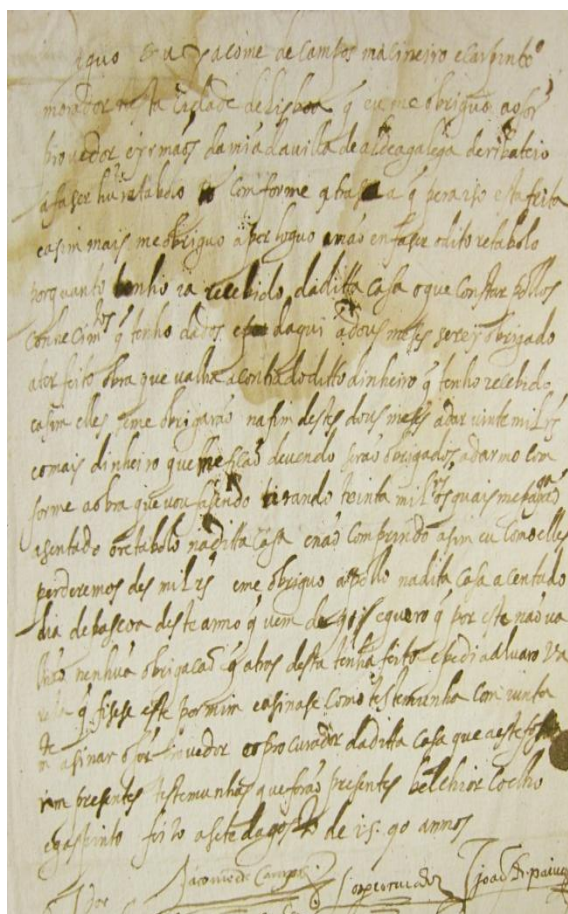 diguo eu yacome de campos marcineiro e carpintrº
morador nesta cidade de lisboa q̃ eu me obriguo ao sõr
provedor e irmãos da miã da villa de aldeagalega de ribateio
a faser hũ retabolo conforme q̃ trasa q̃ pera iso esta feita
e asim mais me obriguo a por loguo mão en faser o dito retabolo
porquanto tenho ia recebido da ditta casa o que constar pollos
connecimtos q̃ tenho dados e daqui a dous meses serey obrigado
a ter feito obra que valha a contia do ditto dinheiro q̃ tenho recebido
e asim elles se me obrigarão na fim destes dous meses a dar vinte mil rs
e o mais dinheiro que me ficão devendo serão obrigados a darmo con
forme a obra que vou fasendo tirando trinta mil rs os quais me pagarão
asentado o retabolo na ditta casa e não comprindo asim eu como elles
perderemos des mil rs e me obriguo a pollo na dita casa acentado
dia de pascoa deste anno q̃ vem de 91 e quero q̃ por este não va
lhão nenhũa obrigacão q̃ atras desta tenha feito e pedi a alvaro va
rela q̃ fisese este por mim e asinase como testemunha con minha
te m asinar o sõr provedor e o procurador da ditta casa que a este fo
rem presentes testemunhas que forão presentes belchior coelho
e gaspinto feito a sete dagosto de 1590 annos
Jacome de Campos